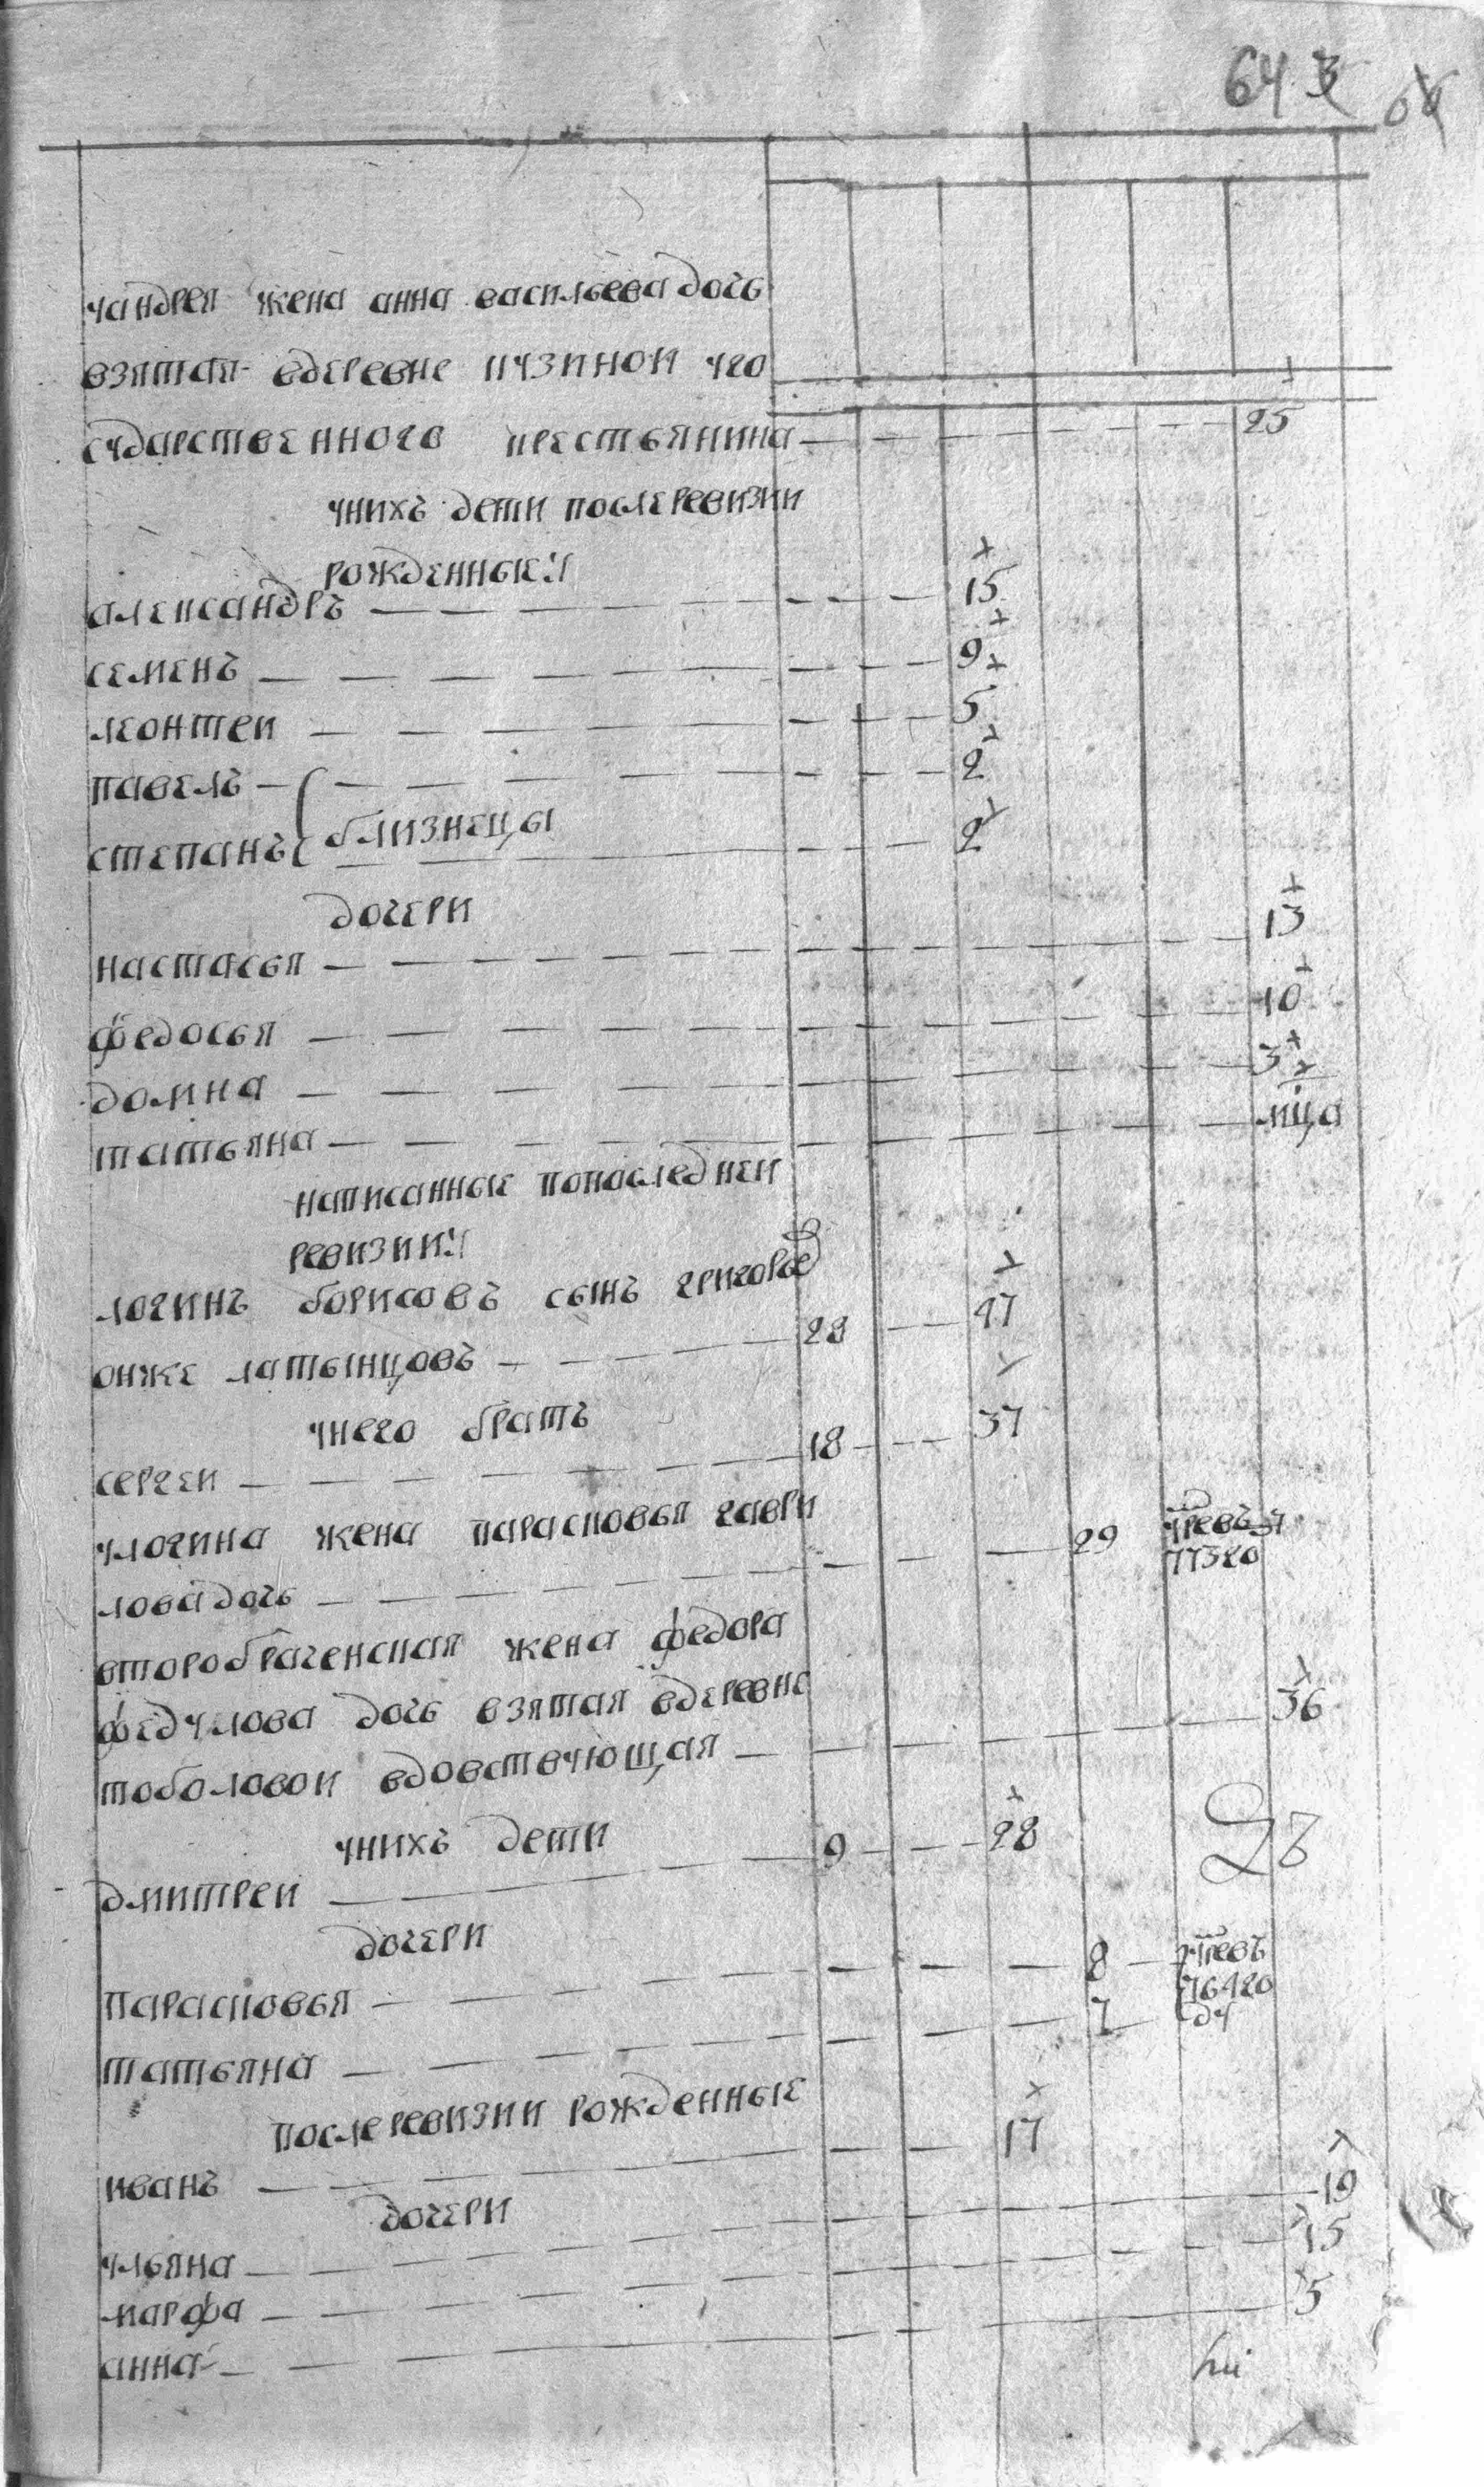 64
уандрея жена анна васильева дочь
взятая вдеревне кузиной уго
сударственного крестьянина 25
унихъ дети послеревизии
рожденные
александръ 15
семенъ 9
леонтеи 5
павелъ 2
близнецы
степанъ 2
дочери
настасья 13
федосья 10
домна 3
татьяна мца
написанные попоследнеи
ревизии
логинъ борисовъ сынъ григорьев
онже латынцовъ 28 47
унего братъ
сергеи 18 37
улогина жена парасковья гаври
лова дочь 29
второбраченская жена федора
федулова дочь взятая вдеревне
тоболовои вдовствующая 36
унихъ дети
дмитреи 9 28
дочери
парасковья 8
татьяна 7
послеревизии рожденные
иванъ 17
дочери
ульяна 19
марфа 15
анна 5